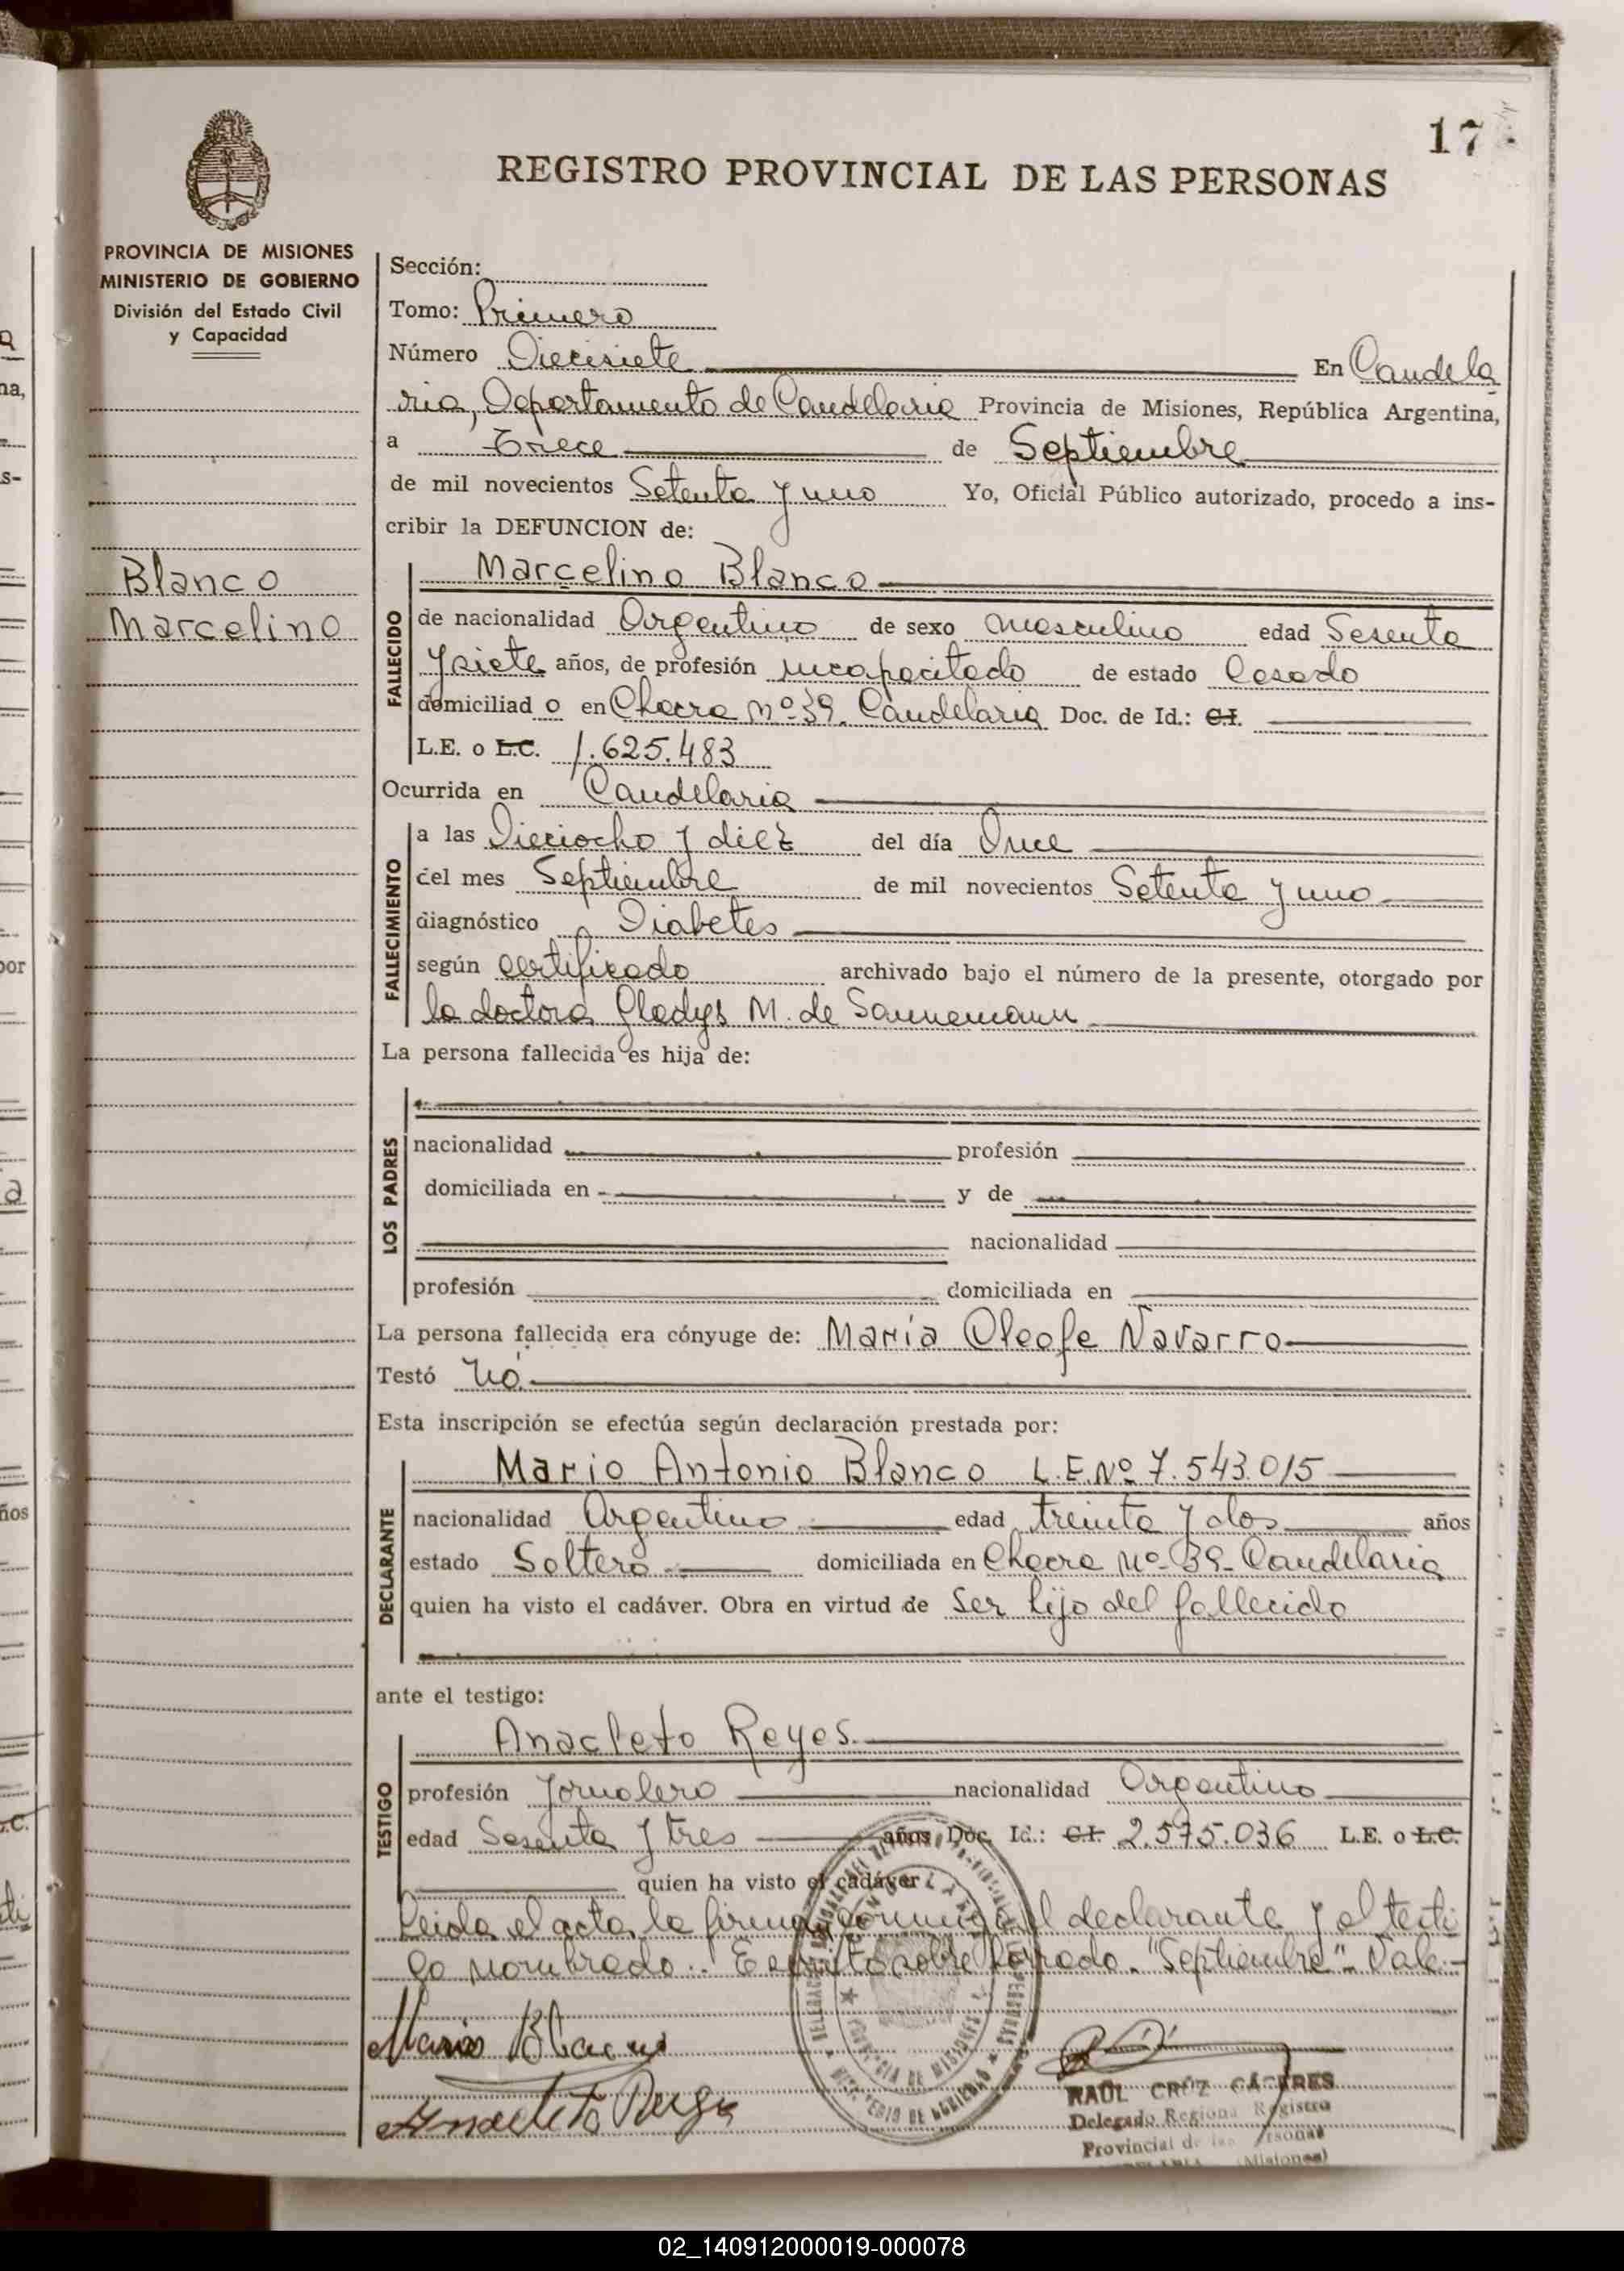 17
REGISTRO PROVINCIAL DE LAS PERSONAS
PROVINCIA DE MISIONES
MINISTERIO DE GOBIERNO
División del Estado Civil
y Capacidad
Blanco
Marcelino
Sección:
Tomo: Primero
Número Diecisiete En Candela
ria, Departamento de Candelaria Provincia de Misiones, República Argentina,
a Trece de Septiembre
de mil novecientos Setenta y uno Yo, Oficial Público autorizado, procedo a ins-
cribir la DEFUNCION de:
FALLECIDO
Marcelino Blanco
de nacionalidad Argentino de sexo masculino edad Sesenta
y siete años, de profesión incapacitado de estado Casado
domiciliad o en Chacra Nº 39. Candelaria Doc. de Id.: C.I.
L.E. o L.C. 1.625.483
Ocurrida en Candelaria
FALLECIMIENTO
a las Dieciocho y diez del día Once
del mes Septiembre de mil novecientos Setenta y uno
diagnóstico Diabetes
según certificado archivado bajo el número de la presente, otorgado por
la doctora Gladys M. de Sannemann
La persona fallecida es hija de:
LOS PADRES
nacionalidad profesión
domiciliada en y de
nacionalidad
profesión domiciliada en
La persona fallecida era cónyuge de: María Oleofe Navarro
Testó No.
Esta inscripción se efectúa según declaración prestada por:
DECLARANTE
Mario Antonio Blanco L.E.Nº 7.543.015
nacionalidad Argentino edad treinta y dos años
estado Soltero domiciliada en Chacra Nº 39- Candelaria
quien ha visto el cadáver. Obra en virtud de Ser hijo del fallecido
ante el testigo:
TESTIGO
Anacleto Reyes.
profesión Jornalero nacionalidad Argentino
edad Sesenta y tres años, Doc. Id.: C.I. 2.575.036 L.E. o L.C.
quien ha visto el cadáver
Leida el acta, la firman conmigo el declarante y el testi
go nombrado.. Escrito sobre borrado. "Septiembre"- Vale.-
Mario Blanco
RAÚL CRUZ CACERES
Delegado Regional Registro
Provincial de las Personas
(Misiones)
02_140912000019-000078